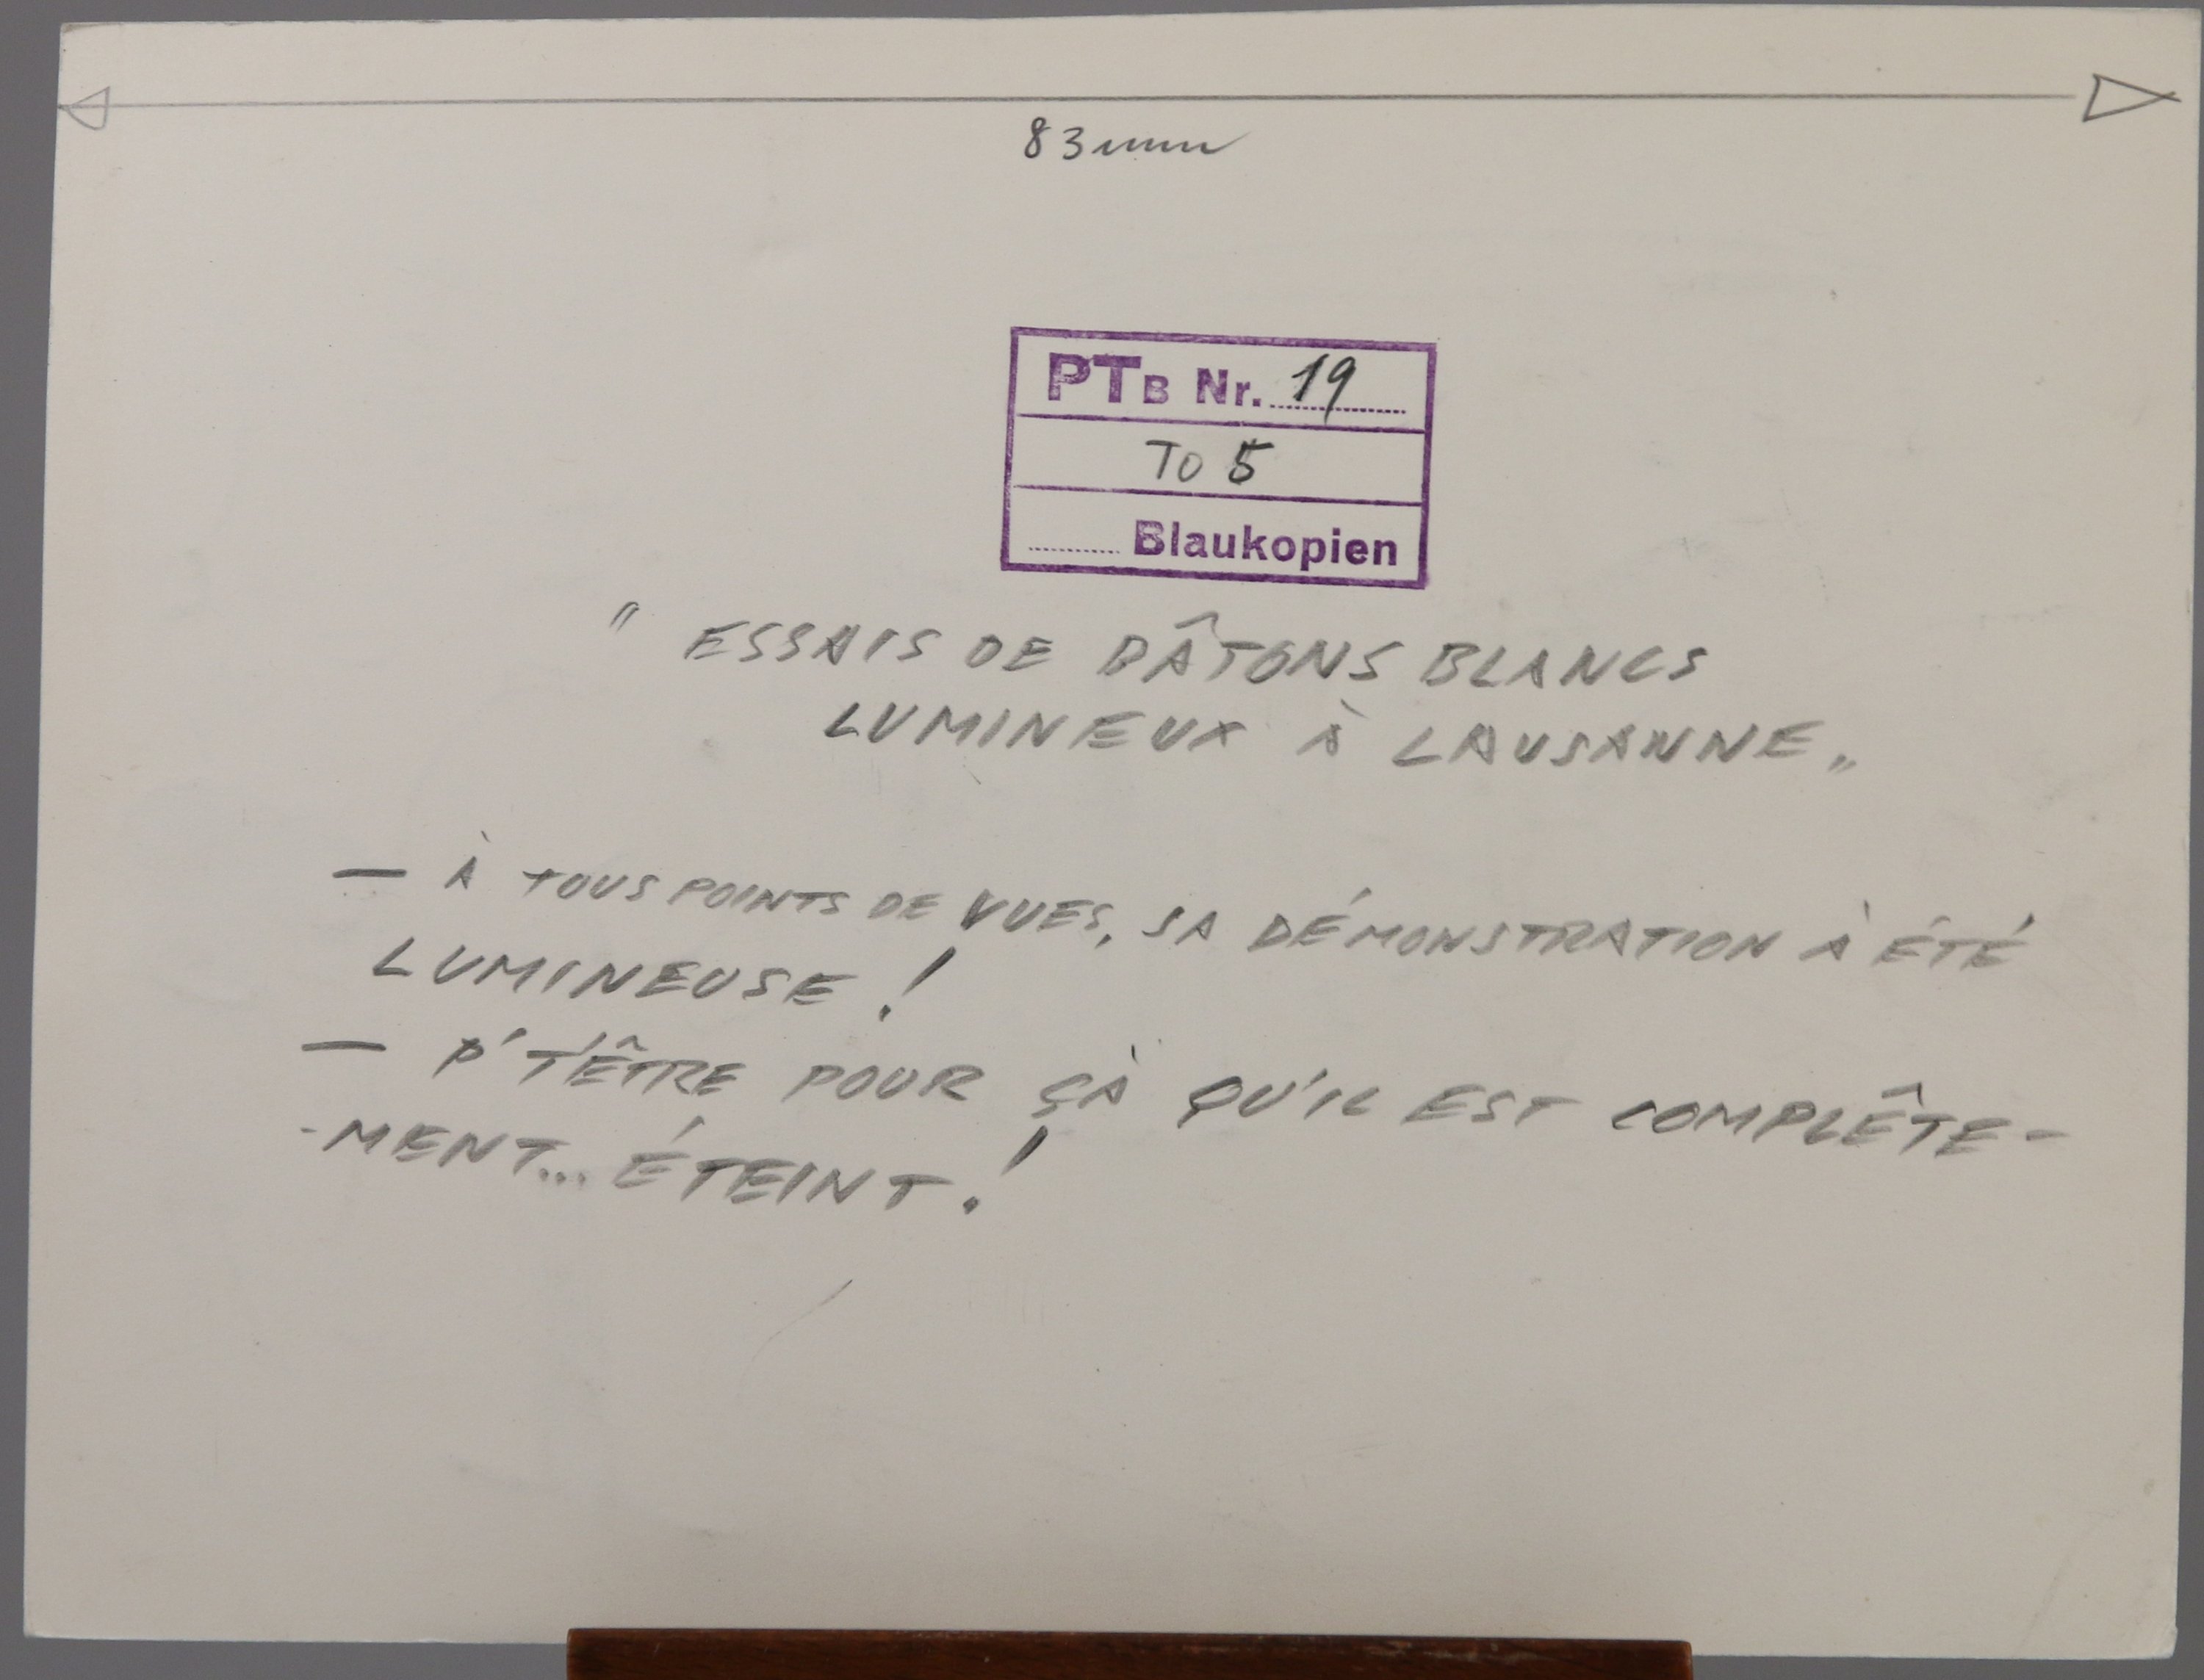 83mm
PTB Nr. 19
To 5
Blaukopien
" ESSAIS DE BÂTONS BLANCS
LUMINEUX À LAUSANNE „
— À TOUS POINTS DE VUES, SA DÉMONSTRATION À ÉTÉ
LUMINEUSE !
— P'T'ÊTRE POUR ÇÀ QU'IL EST COMPLÊTE-
-MENT... ÉTEINT !